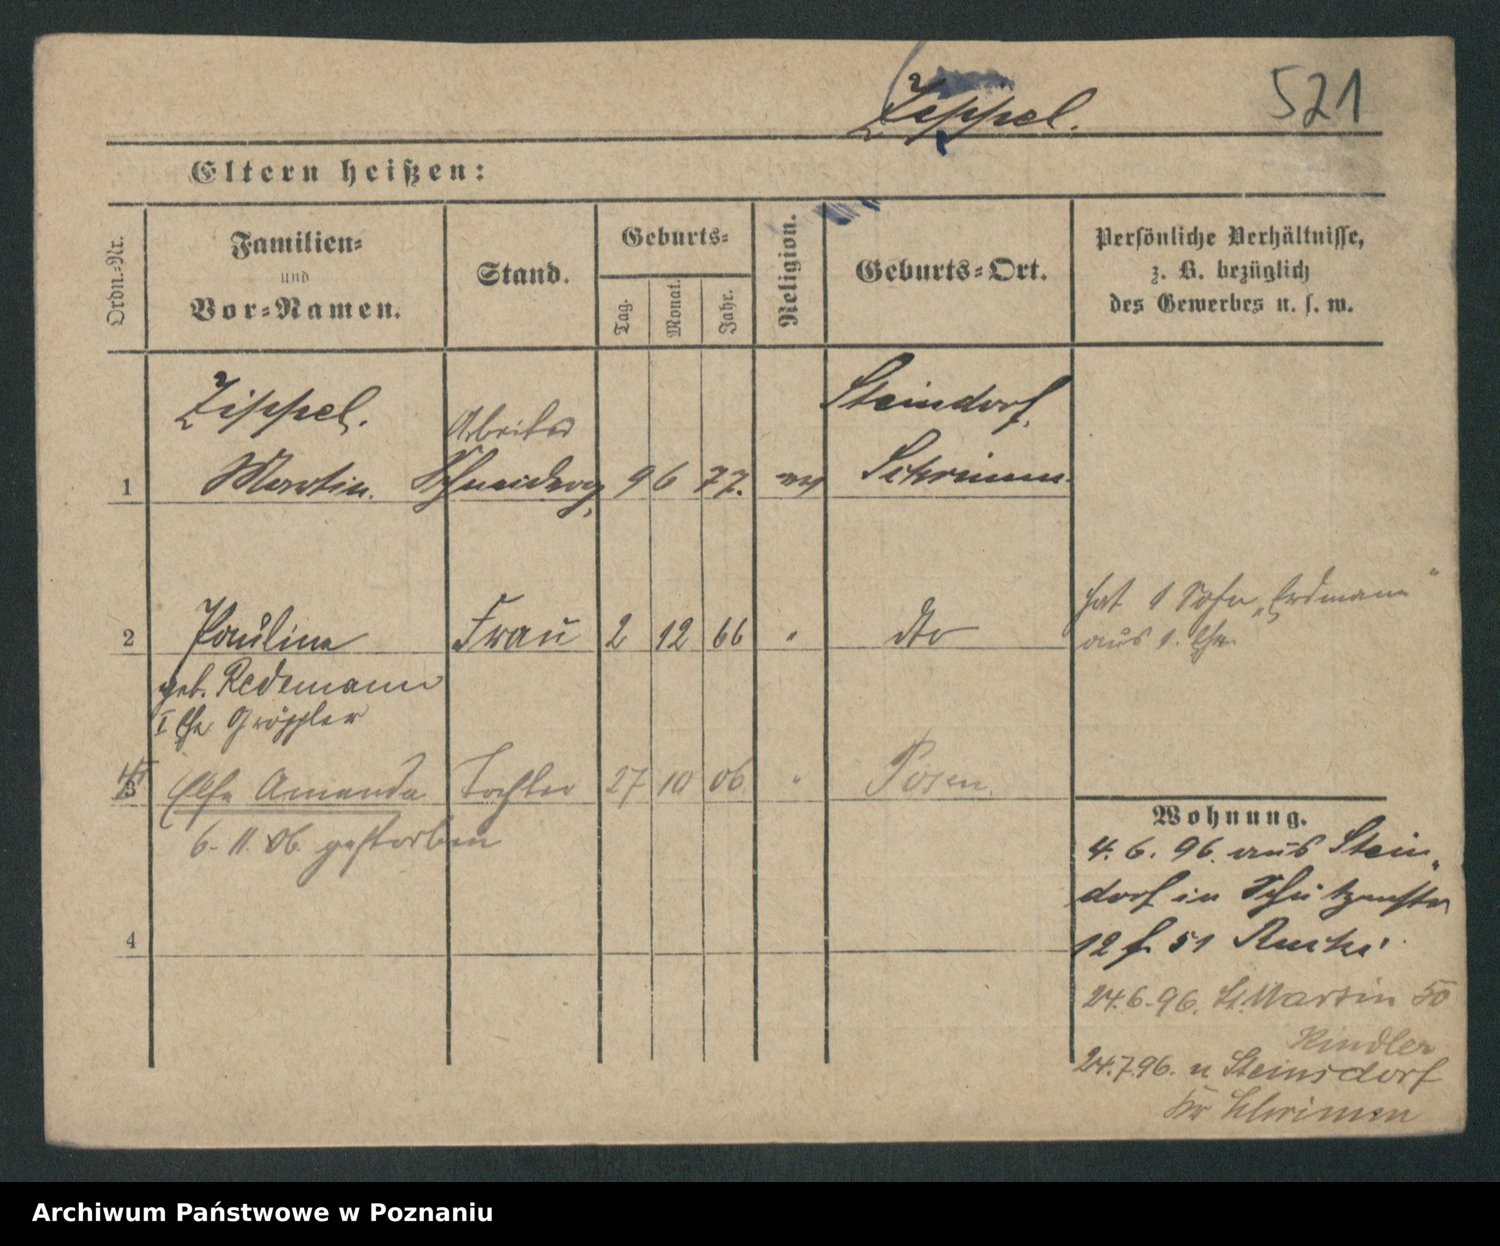 521
Zippel.
Eltern heißen:
Ordn.-Nr.
Familien-
und
Vor-Namen.
Stand.
Geburts-
Tag.
Monat.
Jahr.
Religion.
Geburts-Ort.
Persönliche Verhältnisse,
z. B. bezüglich
des Gewerbes u. s. w.
Zippel.
Steindorf,
Arbeiter
1 Martin. 9 6 77. Schrimm.
2 Pauline Frau 2 12 66 " dto
hat 1 Sohn „Erdmann"
aus 1. Ehe
geb. Redemann
I Ehe
3 Else Amanda Tochter 27 10 06. " Posen.
6. 11. 06. gestorben
4
Wohnung.
4. 6. 96. aus Stein-
dorf in Schützenstr
12 51
24.6.96. St. Martin 50
Kindler
24.7.96. n Steinsdorf
Kr Schrimm
Archiwum Państwowe w Poznaniu